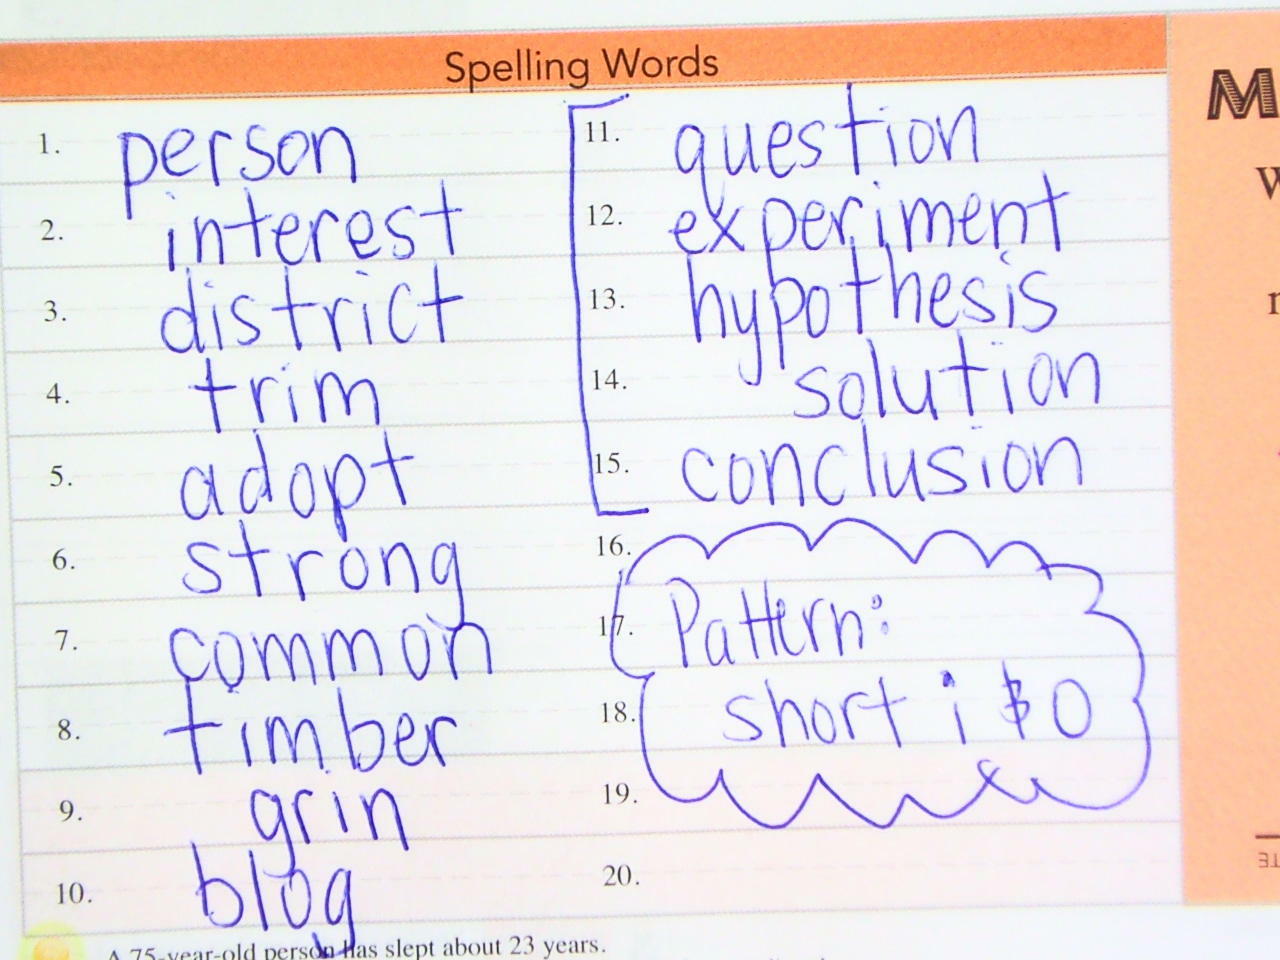 Spelling Words
1. person
2. interest
3. district
4. trim
5. adopt
6. strong
7. common
8. timber
9. grin
10. blog
11. question
12. experiment
13. hypothesis
14. solution
15. conclusion
16.
17. Pattern:
18. short i & O
19.
20.
M
A 75-year-old person has slept about 23 years.